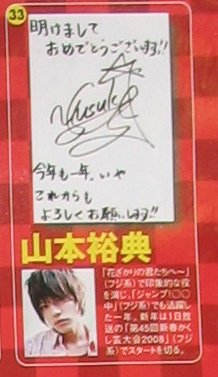 33
明けまして
おめでとうございます!!
Yusuke
今年も一年、いや
これからも
よろしくお願いします!!
山本裕典
「花ざかりの君たちへ〜」
(フジ系)で印象的な役
を演じ、「ジャンプ!○○
中」(フジ系)でも活躍し
た一年。新年は1日放
送の「第45回新春かく
し芸大会2008」(フジ
系)でスタートを切る。